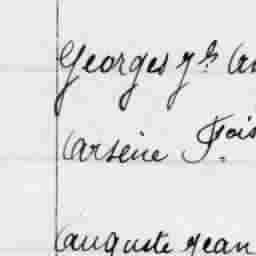 Georges
Arsène F.ois
Auguste Jean